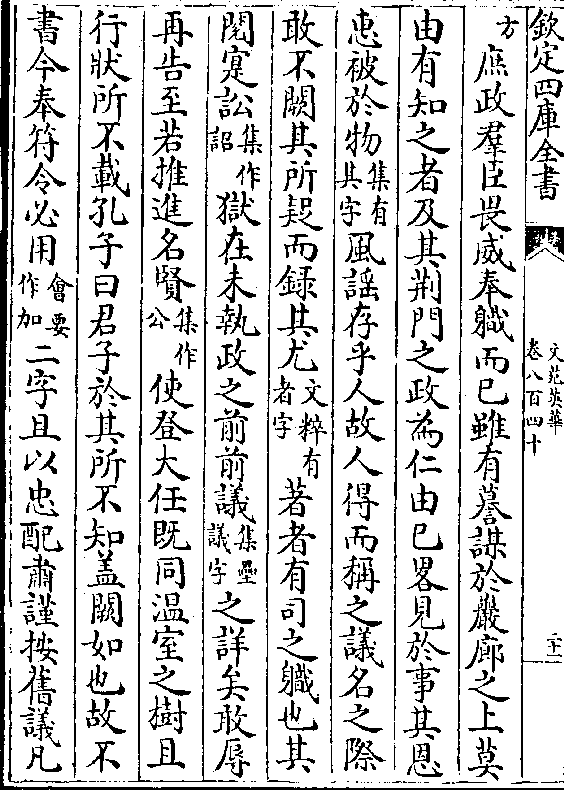 欽定四庫全書
文苑英華
卷八百四十
二十一
方庶政羣臣畏威奉職而已雖有謩謀於巖廊之上莫
由有知之者及其荆門之政為仁由已畧見於事其恩
惠被於物集有其字風謡存乎人故人得而稱之議名之際
敢不闕其所疑而録其尤文粹有者字著者有司之職也其
閱寔訟集作詔獄在未執政之前前議集疊議字之詳矣敢辱
再告至若推進名賢集作公使登大任既同温室之樹且
行狀所不載孔子曰君子於其所不知盖闕如也故不
書今奉符令必用會要作加二字且以忠配肅謹按舊議凡